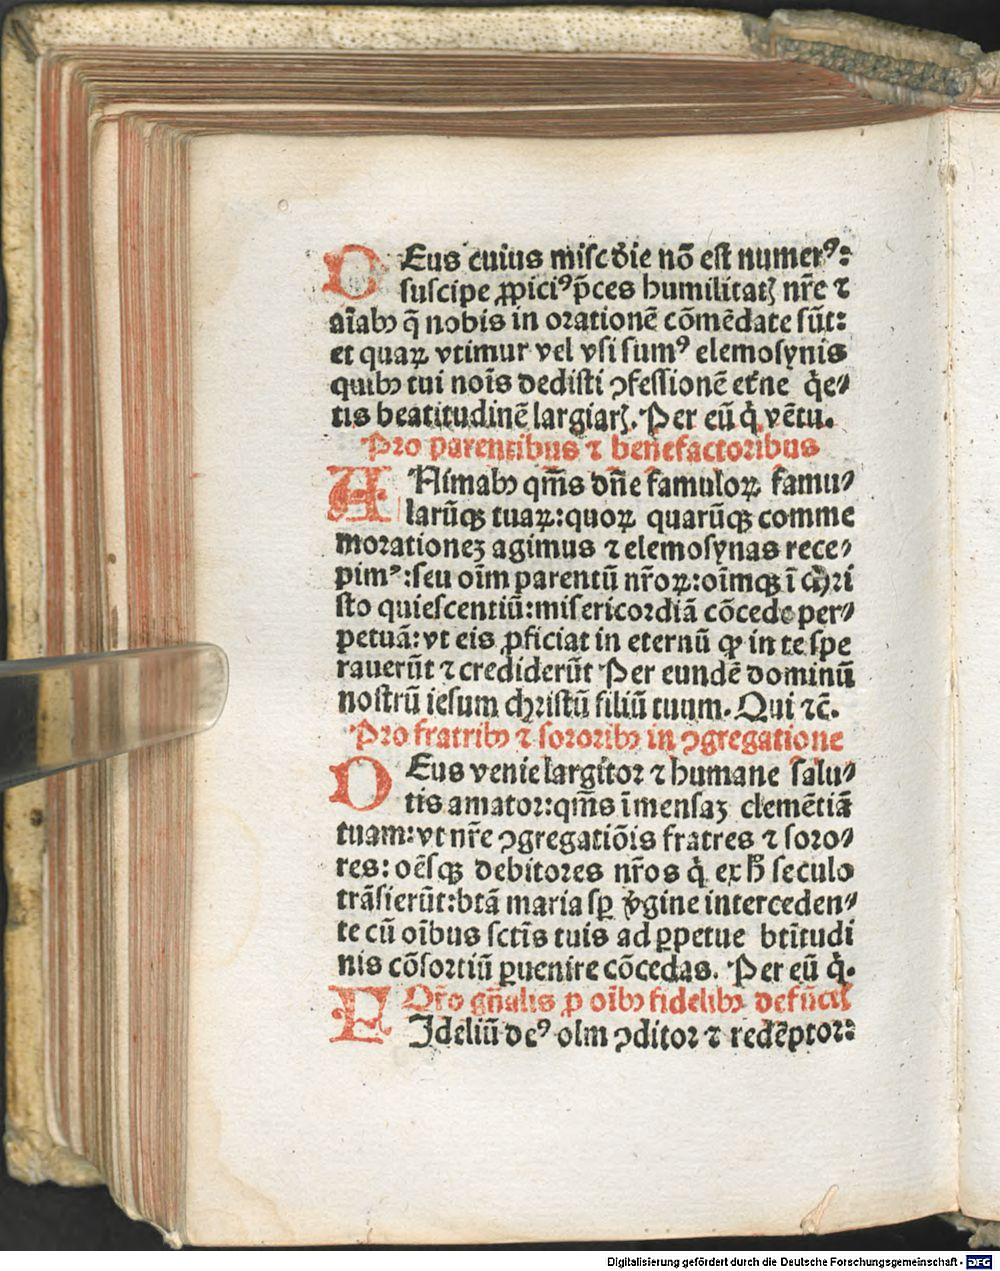 DEus cuius misc̄die nō est numerꝰ:
suscipe ꝓpiciꝰ p̄ces humilitatꝫ nr̄e ⁊
aīabꝰ q̄ nobis in orationē cōmēdate sūt:
et quaꝝ vtimur vel vsi sumꝰ elemosynis
quibꝰ tui noīs dedisti ꝯfessionē etn̄e q̇e⸗
tis beatitudinē largiarꝭ. Per eū q̇ vētu.
Pro parentibus ⁊ benefactoribus
ANimabꝰ qm̄s dn̄e famuloꝝ famu⸗
larūqꝫ tuaꝝ: quoꝝ quarūqꝫ comme
morationeꝫ agimus ⁊ elemosynas rece⸗
pimꝰ: seu oīm parentū nr̄oꝝ: oīmqꝫ ī chri
sto quiescentiū: misericordiā cōcede per⸗
petuā: vt eis ꝓficiat in eternū ꝙ in te spe
rauerūt ⁊ crediderūt Per eundē dominū
nostrū iesum christū filiū tuum. Qui ⁊c̄.
Pro fratribꝰ ⁊ sororibꝰ in ꝯgregatione
DEus venie largitor ⁊ humane salu⸗
tis amator: qm̄s īmensaꝫ clemētiā
tuam: vt nr̄e ꝯgregatiōis fratres ⁊ soro⸗
res: oēsqꝫ debitores nr̄os q̇ ex h̄ seculo
trāsierūt: btā maria sꝑ v̇gine interceden⸗
te cū oībus sctīs tuis ad ꝑpetue btītudi
nis cōsortiū ꝑuenire cōcedas. Per eū q̇.
Or̄o gn̄alis ꝓ oībꝰ fidelibꝰ defūctꝭ
FIdeliū deꝰ olm ꝯditor ⁊ redēptor:
Digitalisierung gefördert durch die Deutsche Forschungsgemeinschaft - DFG